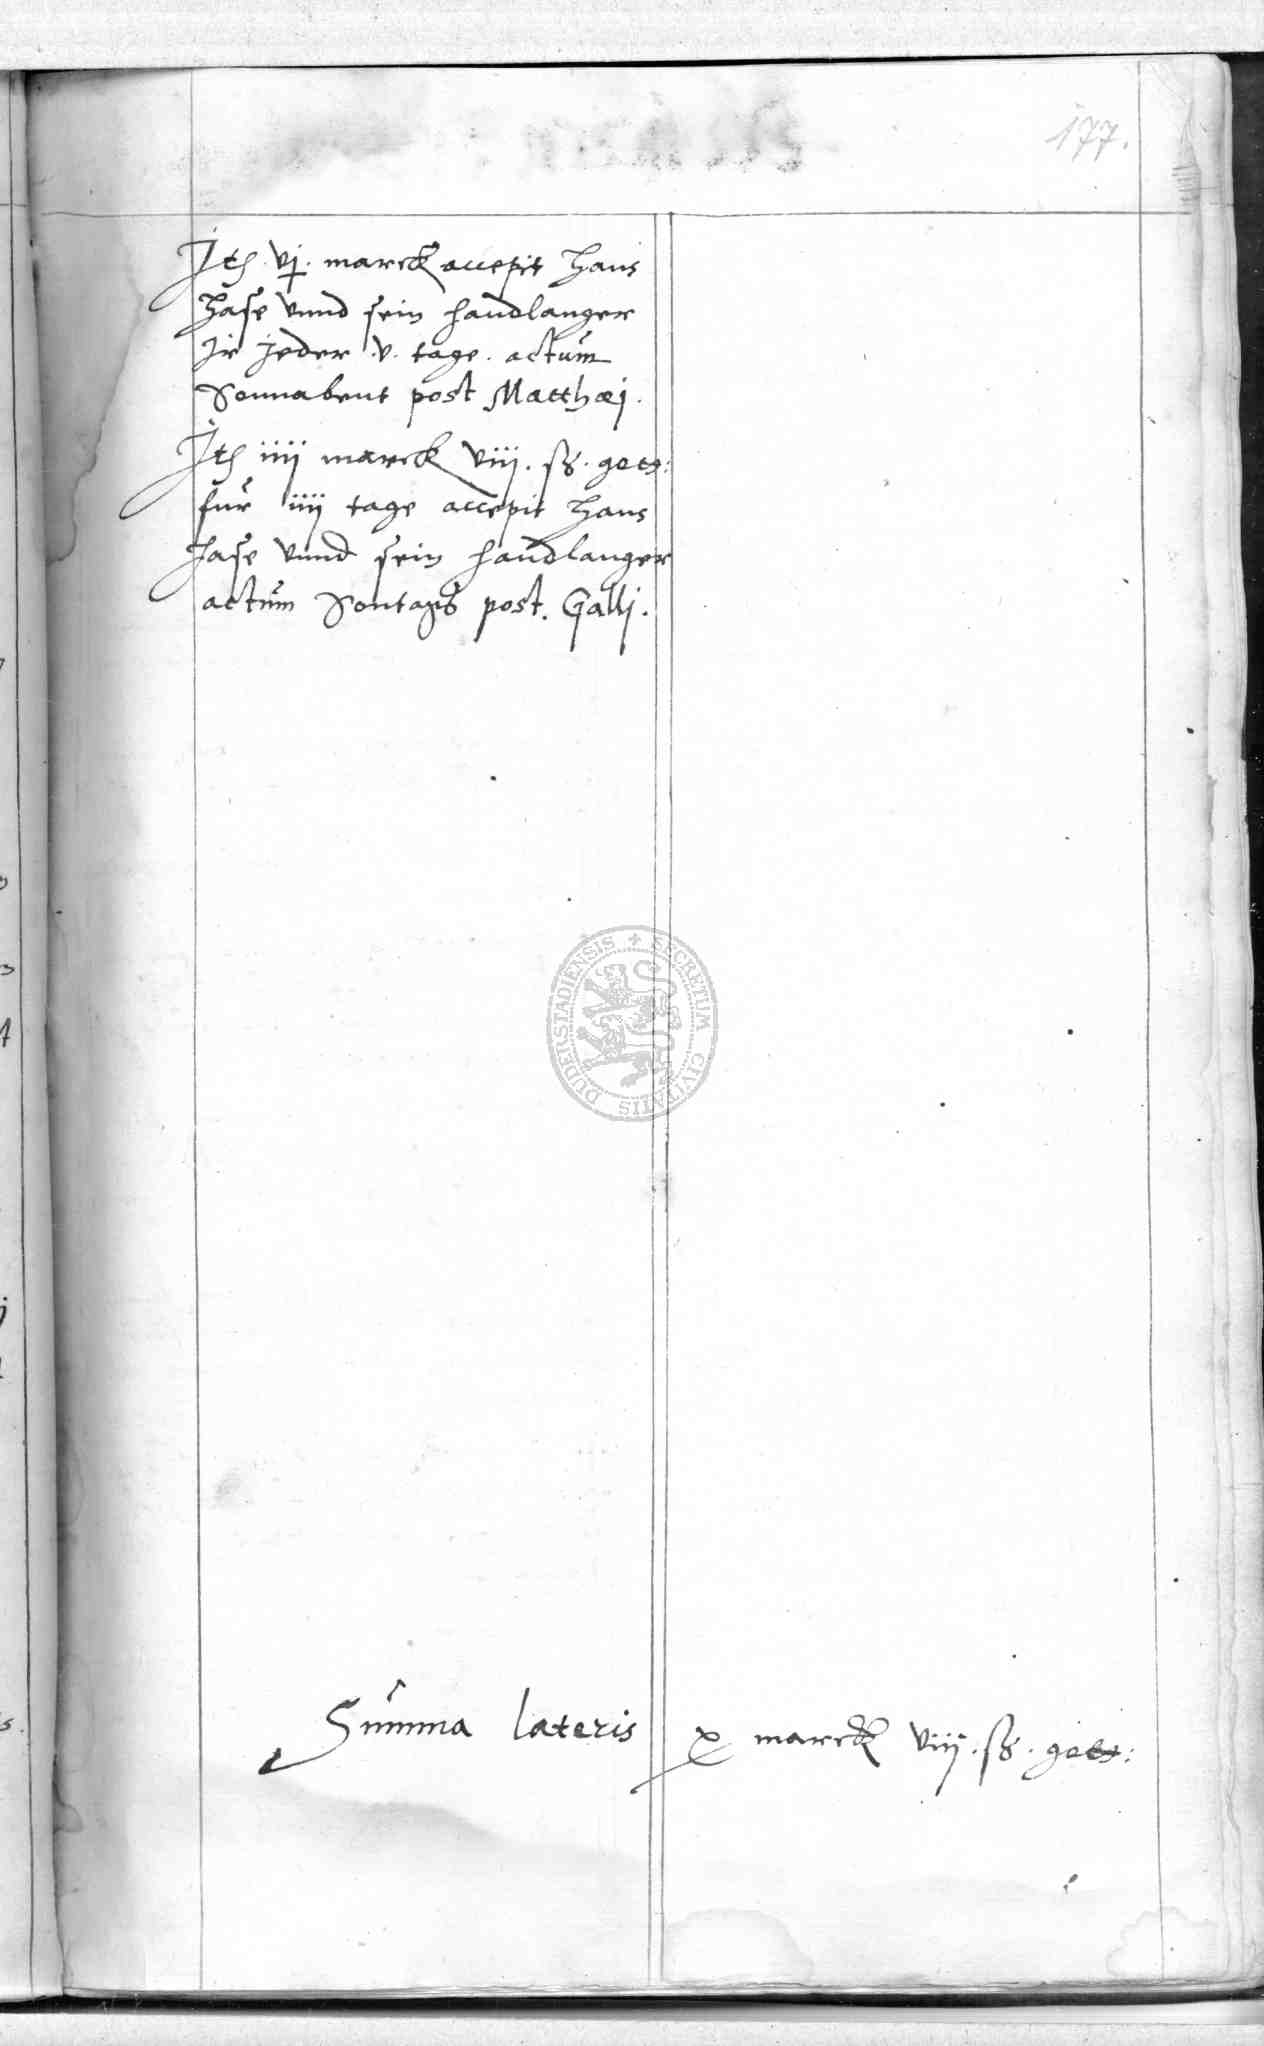 177.
Jtē. vj. marck accepit Hans
Hase vnnd sein handlanger
Jr jeder .v. tage. actum
Sonnabent post Matthæj.
Jtē iiij marck viij. ß. gots:
fur iiij tage accepit Hans
Hase vnnd sein handlanger
actum Sontags post. Galli.
DUDERSTADIENSIS + SECRETUM CIVITATIS
Summa lateris x marck viij. ß. gots: